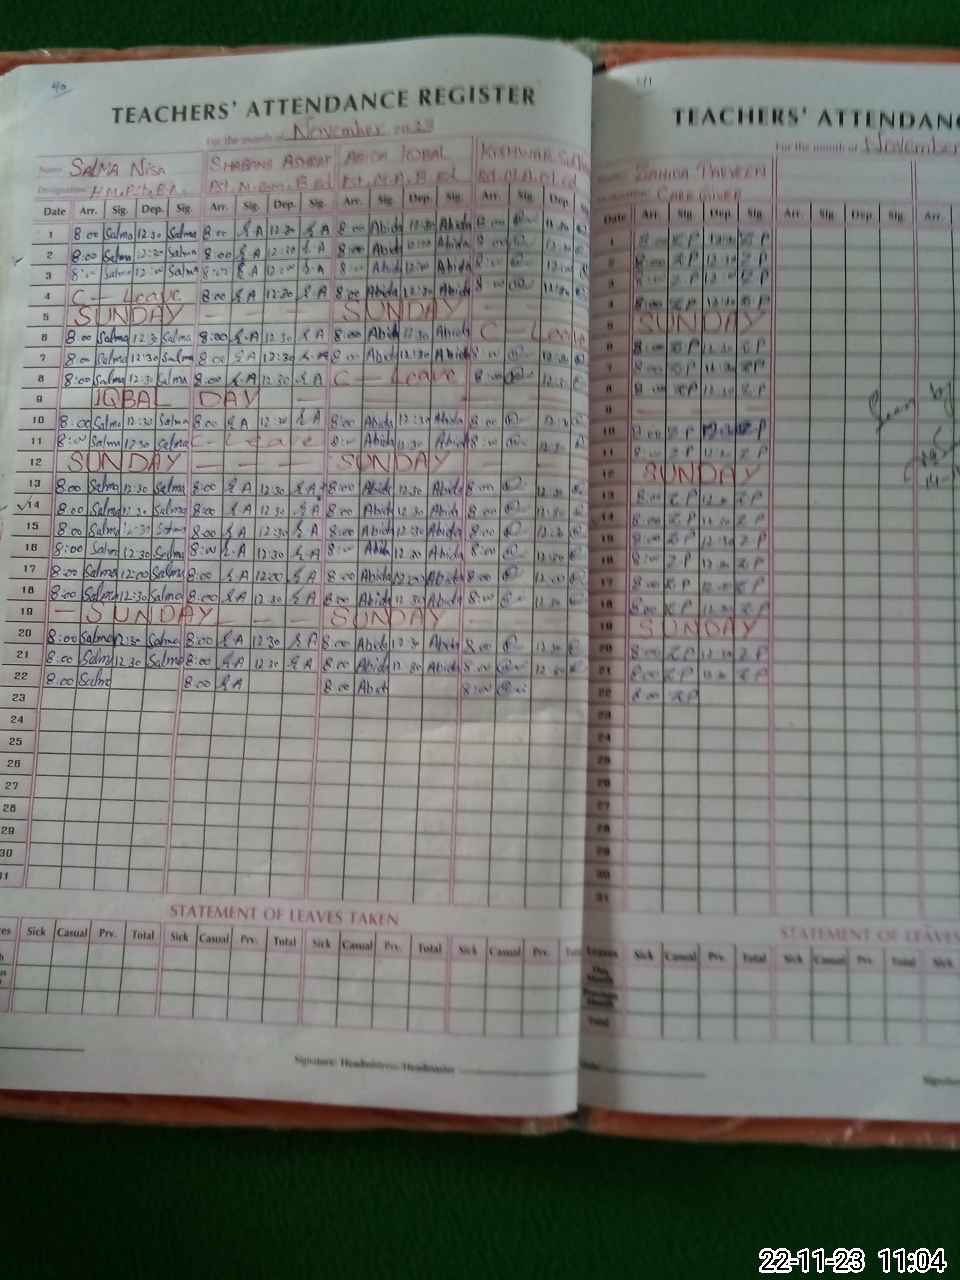 40
TEACHERS' ATTENDANCE REGISTER
For the month of November 2023
Name SALMA NISA SHABANA ASHRAF ABIDA IQBAL KISHWAR
Designation
Date Arr. Sig. Dep. Sig. Arr. Sig. Dep. Sig. Arr. Sig. Dep. Sig. Arr. Sig. Dep.
1 8:00 Salma 12:30 Salma 8:00 S.A 12:30 S.A 8:00 Abida 12:30 Abida 8:00
2 8:00 Salma 12:30 Salma 8:00 S.A 12:30 S.A 8:00 Abida Abida 8:00
3 8:00 Salma 12:00 Salma S.A 12:00 S.A 8:00 Abida 12:00 Abida 8:00
4 C - Leave 8:00 S.A 12:30 S.A 8:00 Abida 12:30 Abida 8:00 12:30
5 SUNDAY - - - SUNDAY - - -
6 8:00 Salma 12:30 Salma 8:00 S.A 12:30 S.A 8:00 Abida 12:30 Abida C - Leave
7 8:00 Salma 12:30 Salma 8:00 S.A 12:30 S.A 8:00 Abida 12:30 Abida 8:00 12:30
8 8:00 Salma 12:30 Salma 8:00 S.A 12:30 S.A C - Leave 8:00 12:30
9 IQBAL DAY - - - -
10 8:00 Salma 12:30 Salma 8:00 S.A 12:30 S.A 8:00 Abida 12:30 Abida 8:00 12:30
11 8:00 Salma 12:30 Salma C - Leave 8:00 Abida 12:30 Abida 8:00 12:30
12 SUNDAY - - - SUNDAY - - -
13 8:00 Salma 12:30 Salma 8:00 S.A 12:30 S.A 8:00 Abida 12:30 Abida 8:00 12:30
14 8:00 Salma 12:30 Salma 8:00 S.A 12:30 S.A 8:00 Abida 12:30 Abida 8:00 12:30
15 8:00 Salma 12:30 Salma 8:00 S.A 12:30 S.A 8:00 Abida 12:30 Abida 8:00 12:30
16 8:00 Salma 12:30 Salma 8:00 S.A 12:30 S.A 8:00 Abida 12:30 Abida 8:00
17 8:00 Salma 12:00 Salma 8:00 S.A 12:00 S.A 8:00 Abida 12:00 Abida 8:00 12:00
18 8:00 Salma 12:30 Salma 8:00 S.A 12:30 S.A 8:00 Abida 12:30 Abida 8:00 12:30
19 - SUNDAY - - - SUNDAY - - -
20 8:00 Salma 12:30 Salma 8:00 S.A 12:30 S.A 8:00 Abida 12:30 Abida 8:00 12:30
21 8:00 Salma 12:30 Salma 8:00 S.A 12:30 S.A 8:00 Abida 12:30 Abida 8:00 12:30
22 8:00 Salma 8:00 S.A 8:00 Abida 8:00
23
24
25
26
27
28
29
30
31
STATEMENT OF LEAVES TAKEN
Sick Casual Prv. Total Sick Casual Prv. Total Sick Casual Prv. Total Sick Casual Prv.
Signature: Headmistress/Headmaster
41
TEACHERS' ATTENDANC
For the month of November
ZAHIDA PARVEEN
CARE GIVER
Date Arr. Sig. Dep. Sig. Arr. Sig. Dep. Sig. Arr.
1 8:00 Z.P 12:30 Z.P
2 8:00 Z.P 12:30 Z.P
3 8:00 Z.P Z.P
4 8:00 Z.P 12:30 Z.P
5 SUNDAY
6 8:00 Z.P 12:30 Z.P
7 8:00 Z.P 12:30 Z.P
8 8:00 Z.P 12:30 Z.P
9 - - - -
10 8:00 Z.P 12:30 Z.P
11 8:00 Z.P 12:30 Z.P
12 SUNDAY
13 8:00 Z.P 12:30 Z.P
14 8:00 Z.P 12:30 Z.P
15 8:00 Z.P 12:30 Z.P
16 8:00 Z.P 12:30 Z.P
17 8:00 Z.P Z.P
18 8:00 Z.P 12:30 Z.P
19 SUNDAY
20 8:00 Z.P 12:30 Z.P
21 8:00 Z.P 12:30 Z.P
22 8:00 Z.P
23
24
25
26
27
28
29
30
31
STATEMENT OF LEAVES
Leaves Sick Casual Prv. Total Sick Casual Prv. Total Sick
Total
22-11-23 11:04